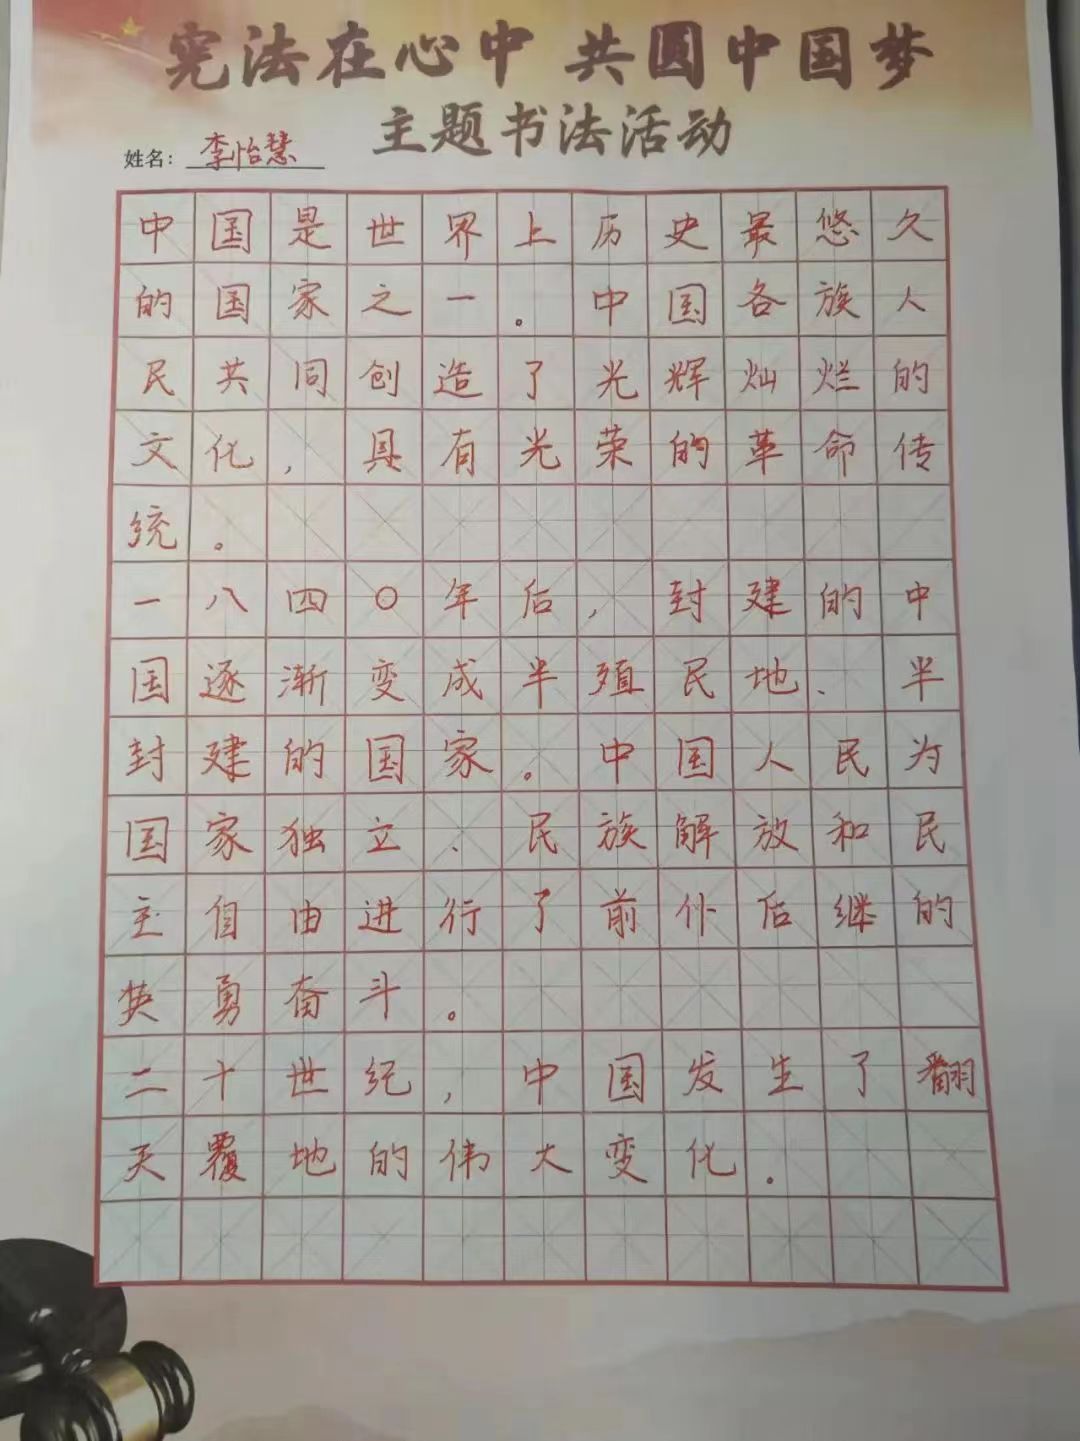 宪法在心中 共圆中国梦
主题书法活动
姓名：李怡慧
中国是世界上历史最悠久
的国家之一。中国各族人
民共同创造了光辉灿烂的
文化，具有光荣的革命传
统。
一八四〇年后，封建的中
国逐渐变成半殖民地、半
封建的国家。中国人民为
国家独立、民族解放和民
主自由进行了前仆后继的
英勇奋斗。
二十世纪，中国发生了翻
天覆地的伟大变化。